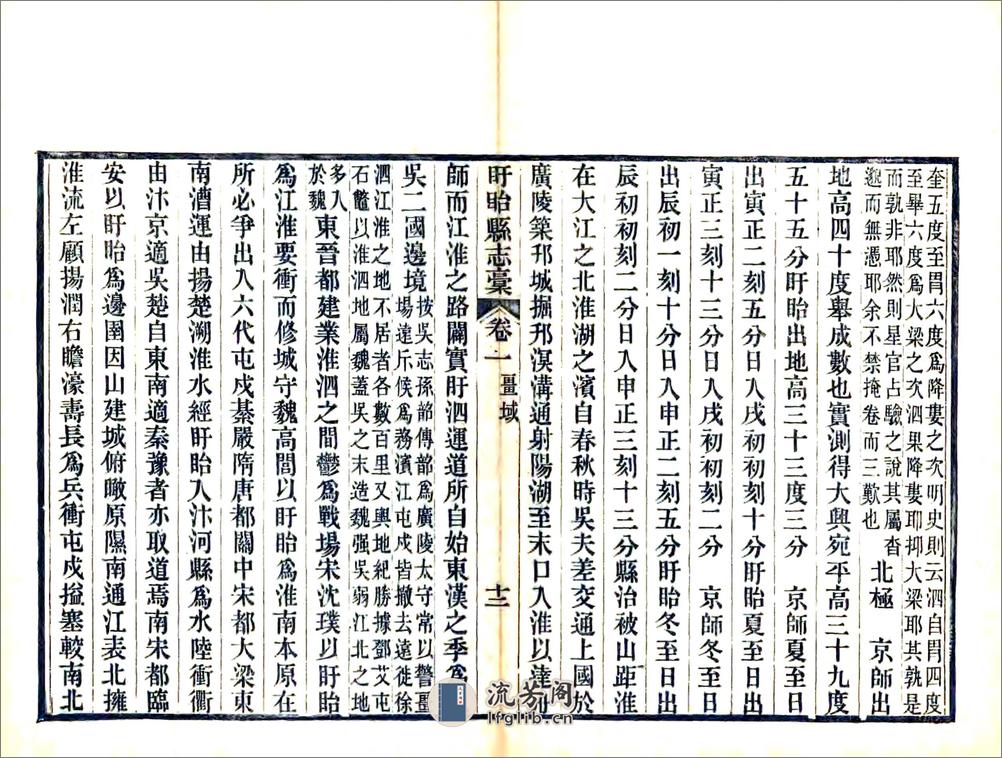 奎五度至胃六度爲降婁之次明史則云泗自胃四度
至畢六度爲大梁之次泗果降婁耶抑大梁耶其孰是
而孰非耶然則星官占驗之說其屬沓
邈而無憑耶余不禁掩卷而三歎也
北極　京師出
地高四十度舉成數也實測得大興宛平高三十九度
五十五分盱眙出地高三十三度三分　京師夏至日
出寅正二刻五分日入戌初初刻十分盱眙夏至日出
寅正三刻十三分日入戌初初刻二分　京師冬至日
出辰初一刻十分日入申正二刻五分盱眙冬至日出
辰初初刻二分日入申正三刻十三分縣治被山距淮
在大江之北淮湖之濱自春秋時吳夫差交通上國於
廣陵築邗城掘邗溟溝通射陽湖至末口入淮以達
盱眙縣志稾　卷一　畺域　十二
師而江淮之路闢實盱泗運道所自始東漢之季爲
吳二國邊境
按吳志孫韶傳韶爲廣陵太守常以警畺
場遠斥候爲務濱江屯戍皆撤去遠徙徐
泗江淮之地不居者各數百里又輿地紀勝據鄧艾屯
石鼈以淮泗地屬魏蓋吳之末造魏强吳弱江北之地
多入
於魏
東晉都建業淮泗之間鬱爲戰場宋沈璞以盱眙
爲江淮要衝而修城守魏高閭以盱眙爲淮南本原在
所必爭出入六代屯戍綦嚴隋唐都關中宋都大梁東
南漕運由揚楚溯淮水經盱眙入汴河縣爲水陸衝衢
由汴京適吳楚自東南適秦豫者亦取道焉南宋都臨
安以盱眙爲邊圉因山建城俯瞰原隰南通江表北擁
淮流左顧揚潤右瞻濠壽長爲兵衝屯戍搤塞較南北
流芳阁
lfglib.cn